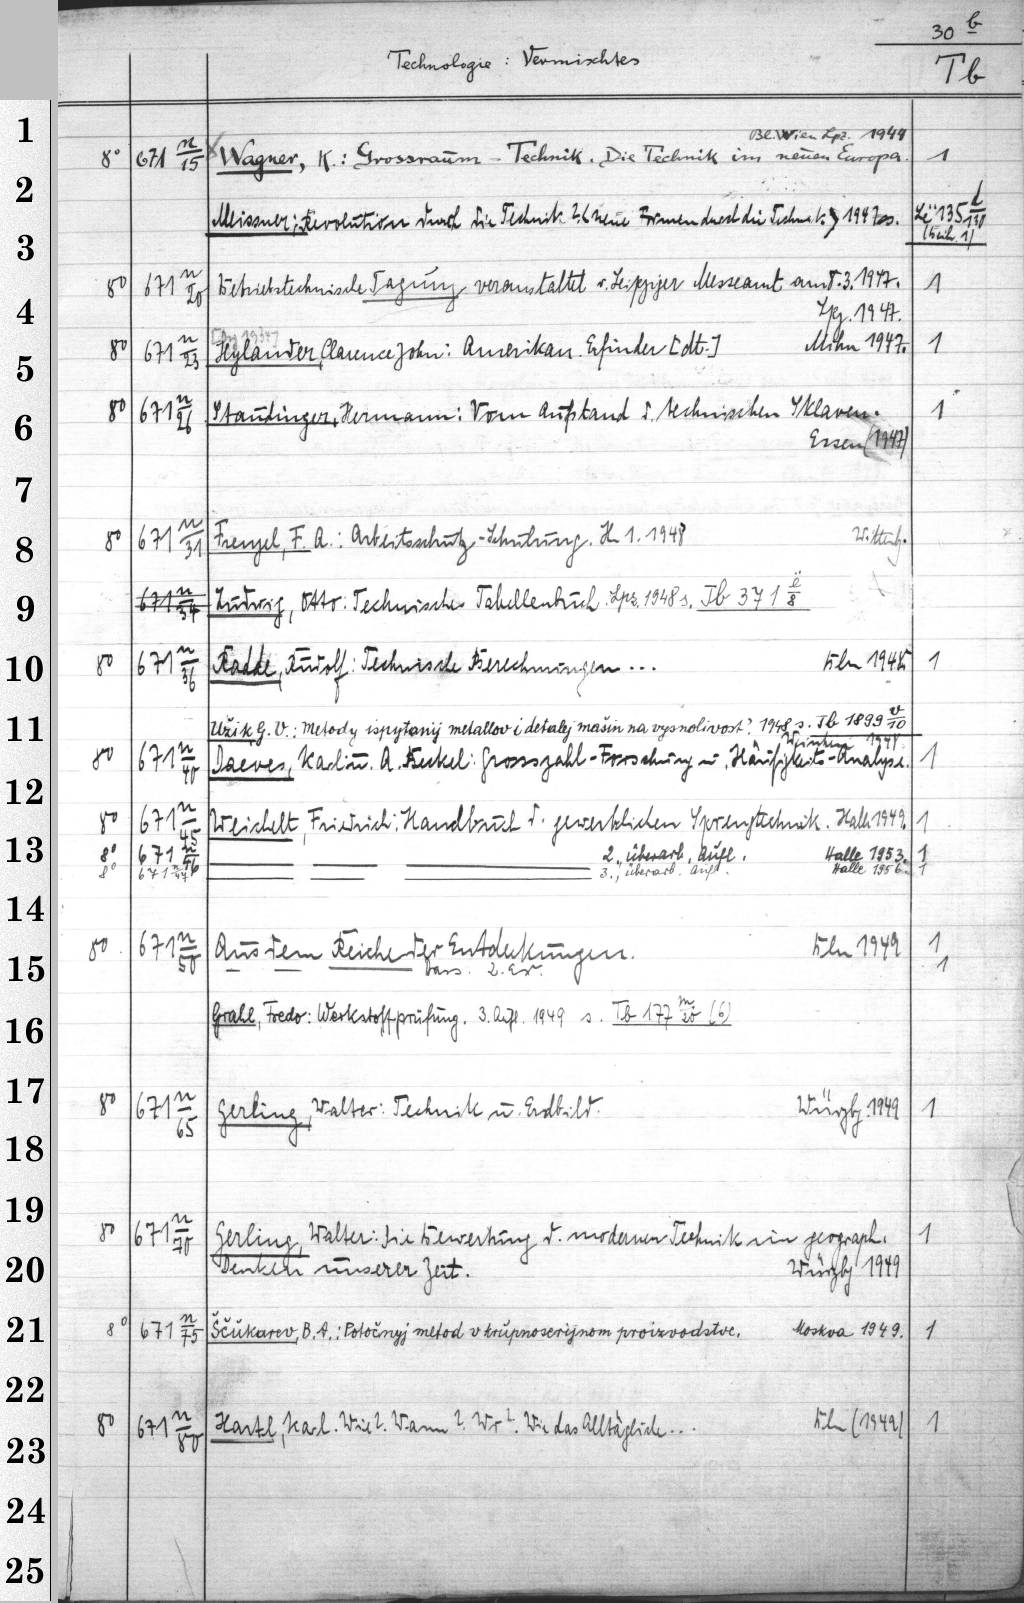 30 b
Technologie : Vermischtes
Tb
1
Bl. Wien Lpz. 1944
8° 671 n/15 Wagner, K.: Grossraum - Technik. Die Technik im neuen Europa. 1
2
Meissner: Revolution durch die Technik neue Formen durch die Technik 1947 s. 135
3
8° 671 n/20 Betriebstechnische Tagung veranstaltet v. Leipziger Messeamt am 8.3.1947. 1
4
Lpz. 1947.
8° 671 n/23 Hylander, Clarence John: Amerikan. Erfinder [dt.] Mchn 1947. 1
5
8° 671 n/26 Staudinger, Hermann: Vom Aufstand d. technischen Sklaven. 1
6
Essen (1947)
7
8° 671 n/31 Frenzel, F. A.: Arbeitsschutz-Schulung. H. 1. 1948 Wittenb.
8
671 n/34 Ludwig, Otto: Technisches Tabellenbuch. Lpz. 1948 s. Tb 371 ë/8
9
8° 671 n/36 Radde, Rudolf: Technische Berechnungen ... Bln 1948 1
10
Užik G. V.: Metody ispytanij metallov i detalej mašin na vynoslivost'. 1948 s. Tb 1899 v/10
11
1948.
8° 671 n/40 Daeves, Karl u. A. Beckel: Grosszahl-Forschung u. Häufigkeits-Analyse. 1
12
8° 671 n/45 Weichelt, Friedrich: Handbuch d. gewerblichen Sprengtechnik. Halle 1949. 1
13
8° 671 n/46 2., überarb. Aufl. Halle 1953. 1
8° 671 n/47 3., überarb. Aufl. Halle 1956. 1
14
8° 671 n/50 Aus dem Reiche der Entdeckungen. Bln 1949 1
15
Dass. 2. Ex. 1
Grahl, Fredo: Werkstoffprüfung. 3. Aufl. 1949 s. Tb 177 m/20 (6)
16
17
8° 671 n/65 Gerling, Walter: Technik u. Erdbild. Würzbg. 1949 1
18
19
8° 671 n/70 Gerling, Walter: Die Bewertung d. modernen Technik im geograph. 1
20
Denken unserer Zeit. Würzbg 1949
21
8° 671 n/75 Ščukarev, B. A.: Potočnyj metod v krupnoserijnom proizvodstve. Moskva 1949. 1
22
8° 671 n/80 Hartl, Karl. Wie? Wann? Wo? Wie das Alltägliche ... Bln (1949) 1
23
24
25